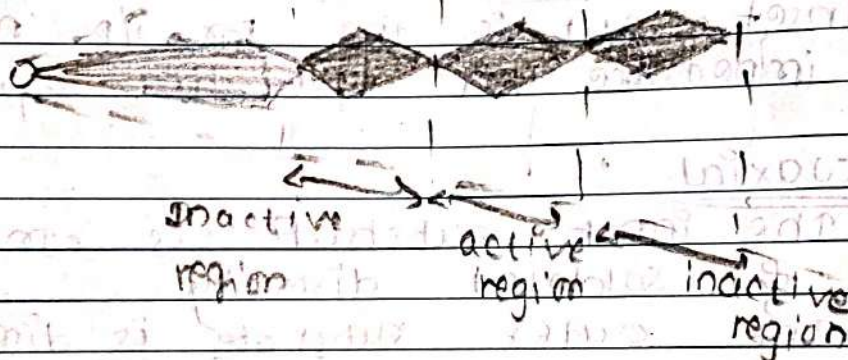 Inactive region
active region
inactive region